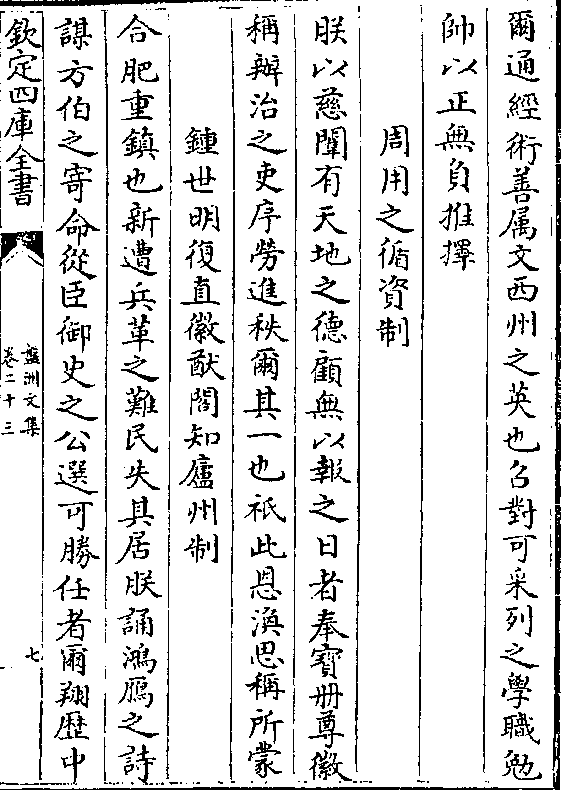 爾通經術善属文西州之英也召對可采列之學職勉
帥以正無負推擇
周用之循資制
朕以慈闈有天地之德顧無以報之日者奉寶册尊徽
稱辦治之吏序勞進秩爾其一也祇此恩渙思稱所蒙
鍾世明復直徽猷閣知廬州制
合肥重鎮也新遭兵革之難民失其居朕誦鴻鴈之詩
謀方伯之寄命從臣御史之公選可勝任者爾翔歴中
欽定四庫全書
盤洲文集
卷二十三
七